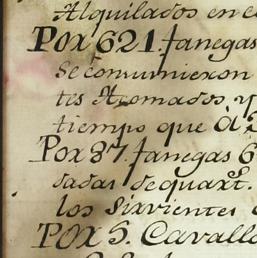 Alquilados en e
Por 621. fanegas
Se consumieron
tes Atomados, y
tiempo que à 3
Por 87. fanegas 6
dadas de quart.
los Sirvientes
Por 5. Cavallo